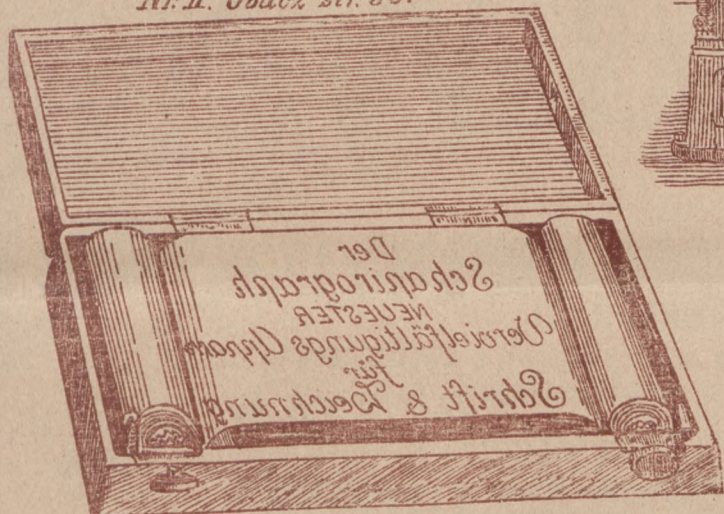 Nr. II. Obacz str. 30.
Der
Schapirograph
NEUESTER
Vervielfältigungs Appara
für
Schrift & Zeichnung